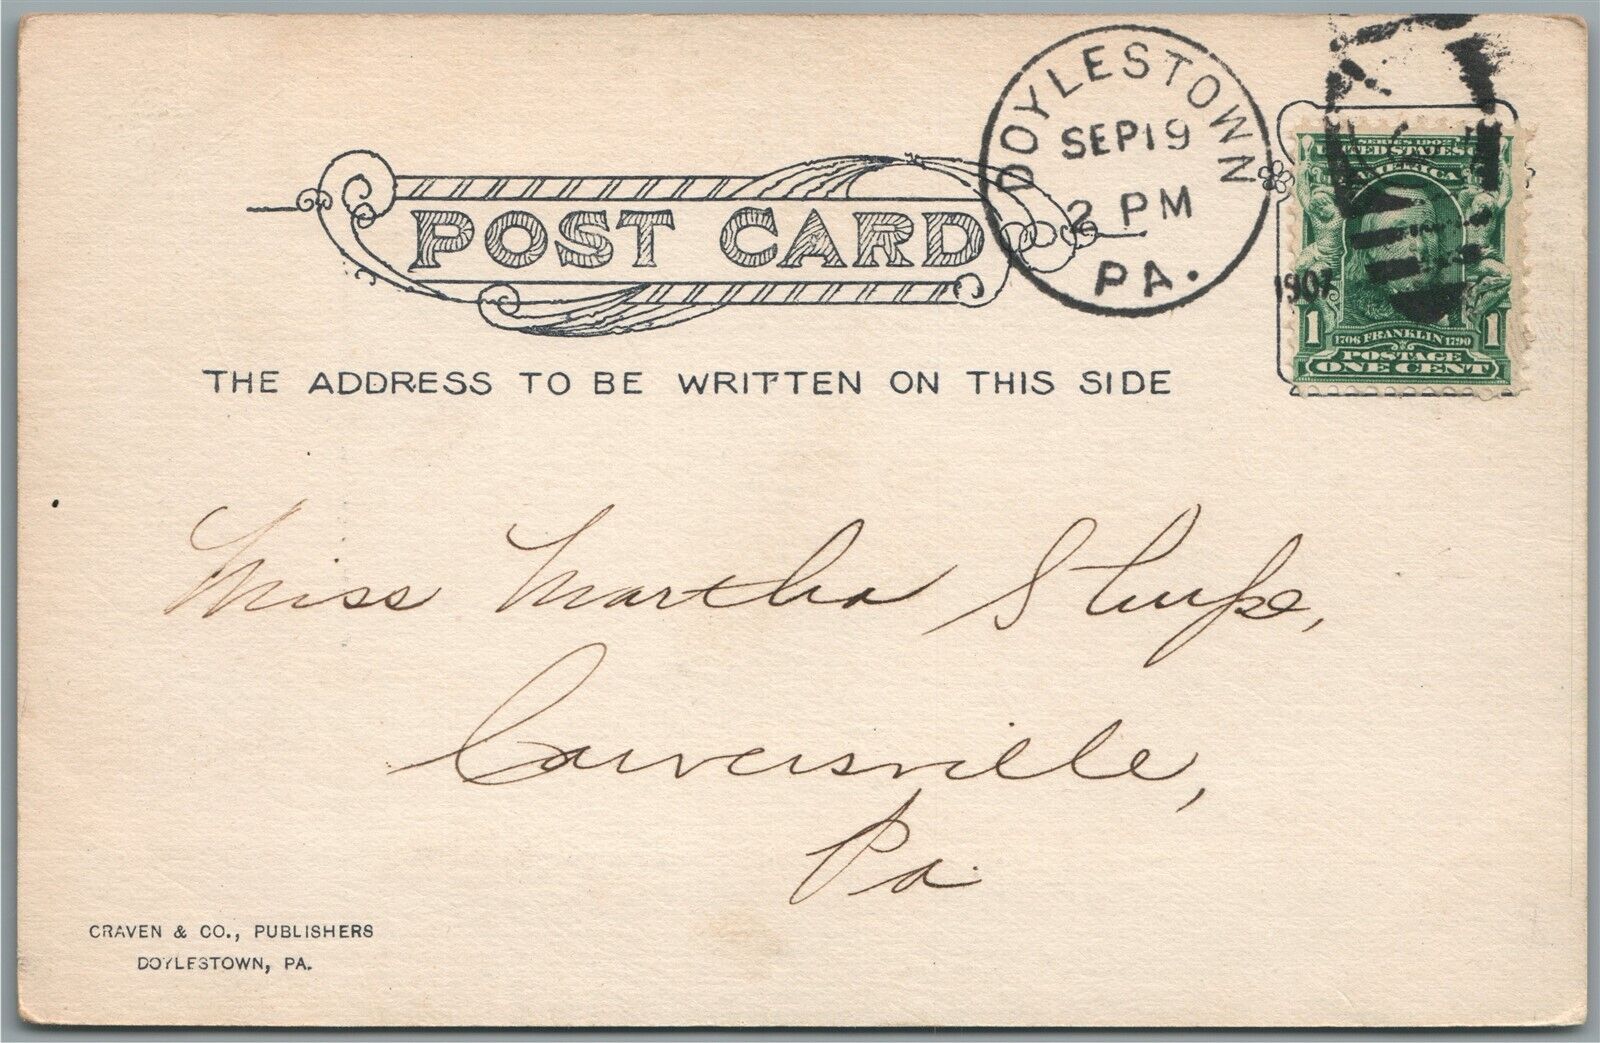 DOYLESTOWN
SEP 19
2 PM
1907
PA.
POST CARD
THE ADDRESS TO BE WRITTEN ON THIS SIDE
SERIES 1902
UNITED STATES OF
AMERICA
1706 FRANKLIN 1790
1 POSTAGE 1
ONE CENT
Miss Martha
Carversville,
Pa.
CRAVEN & CO., PUBLISHERS
DOYLESTOWN, PA.